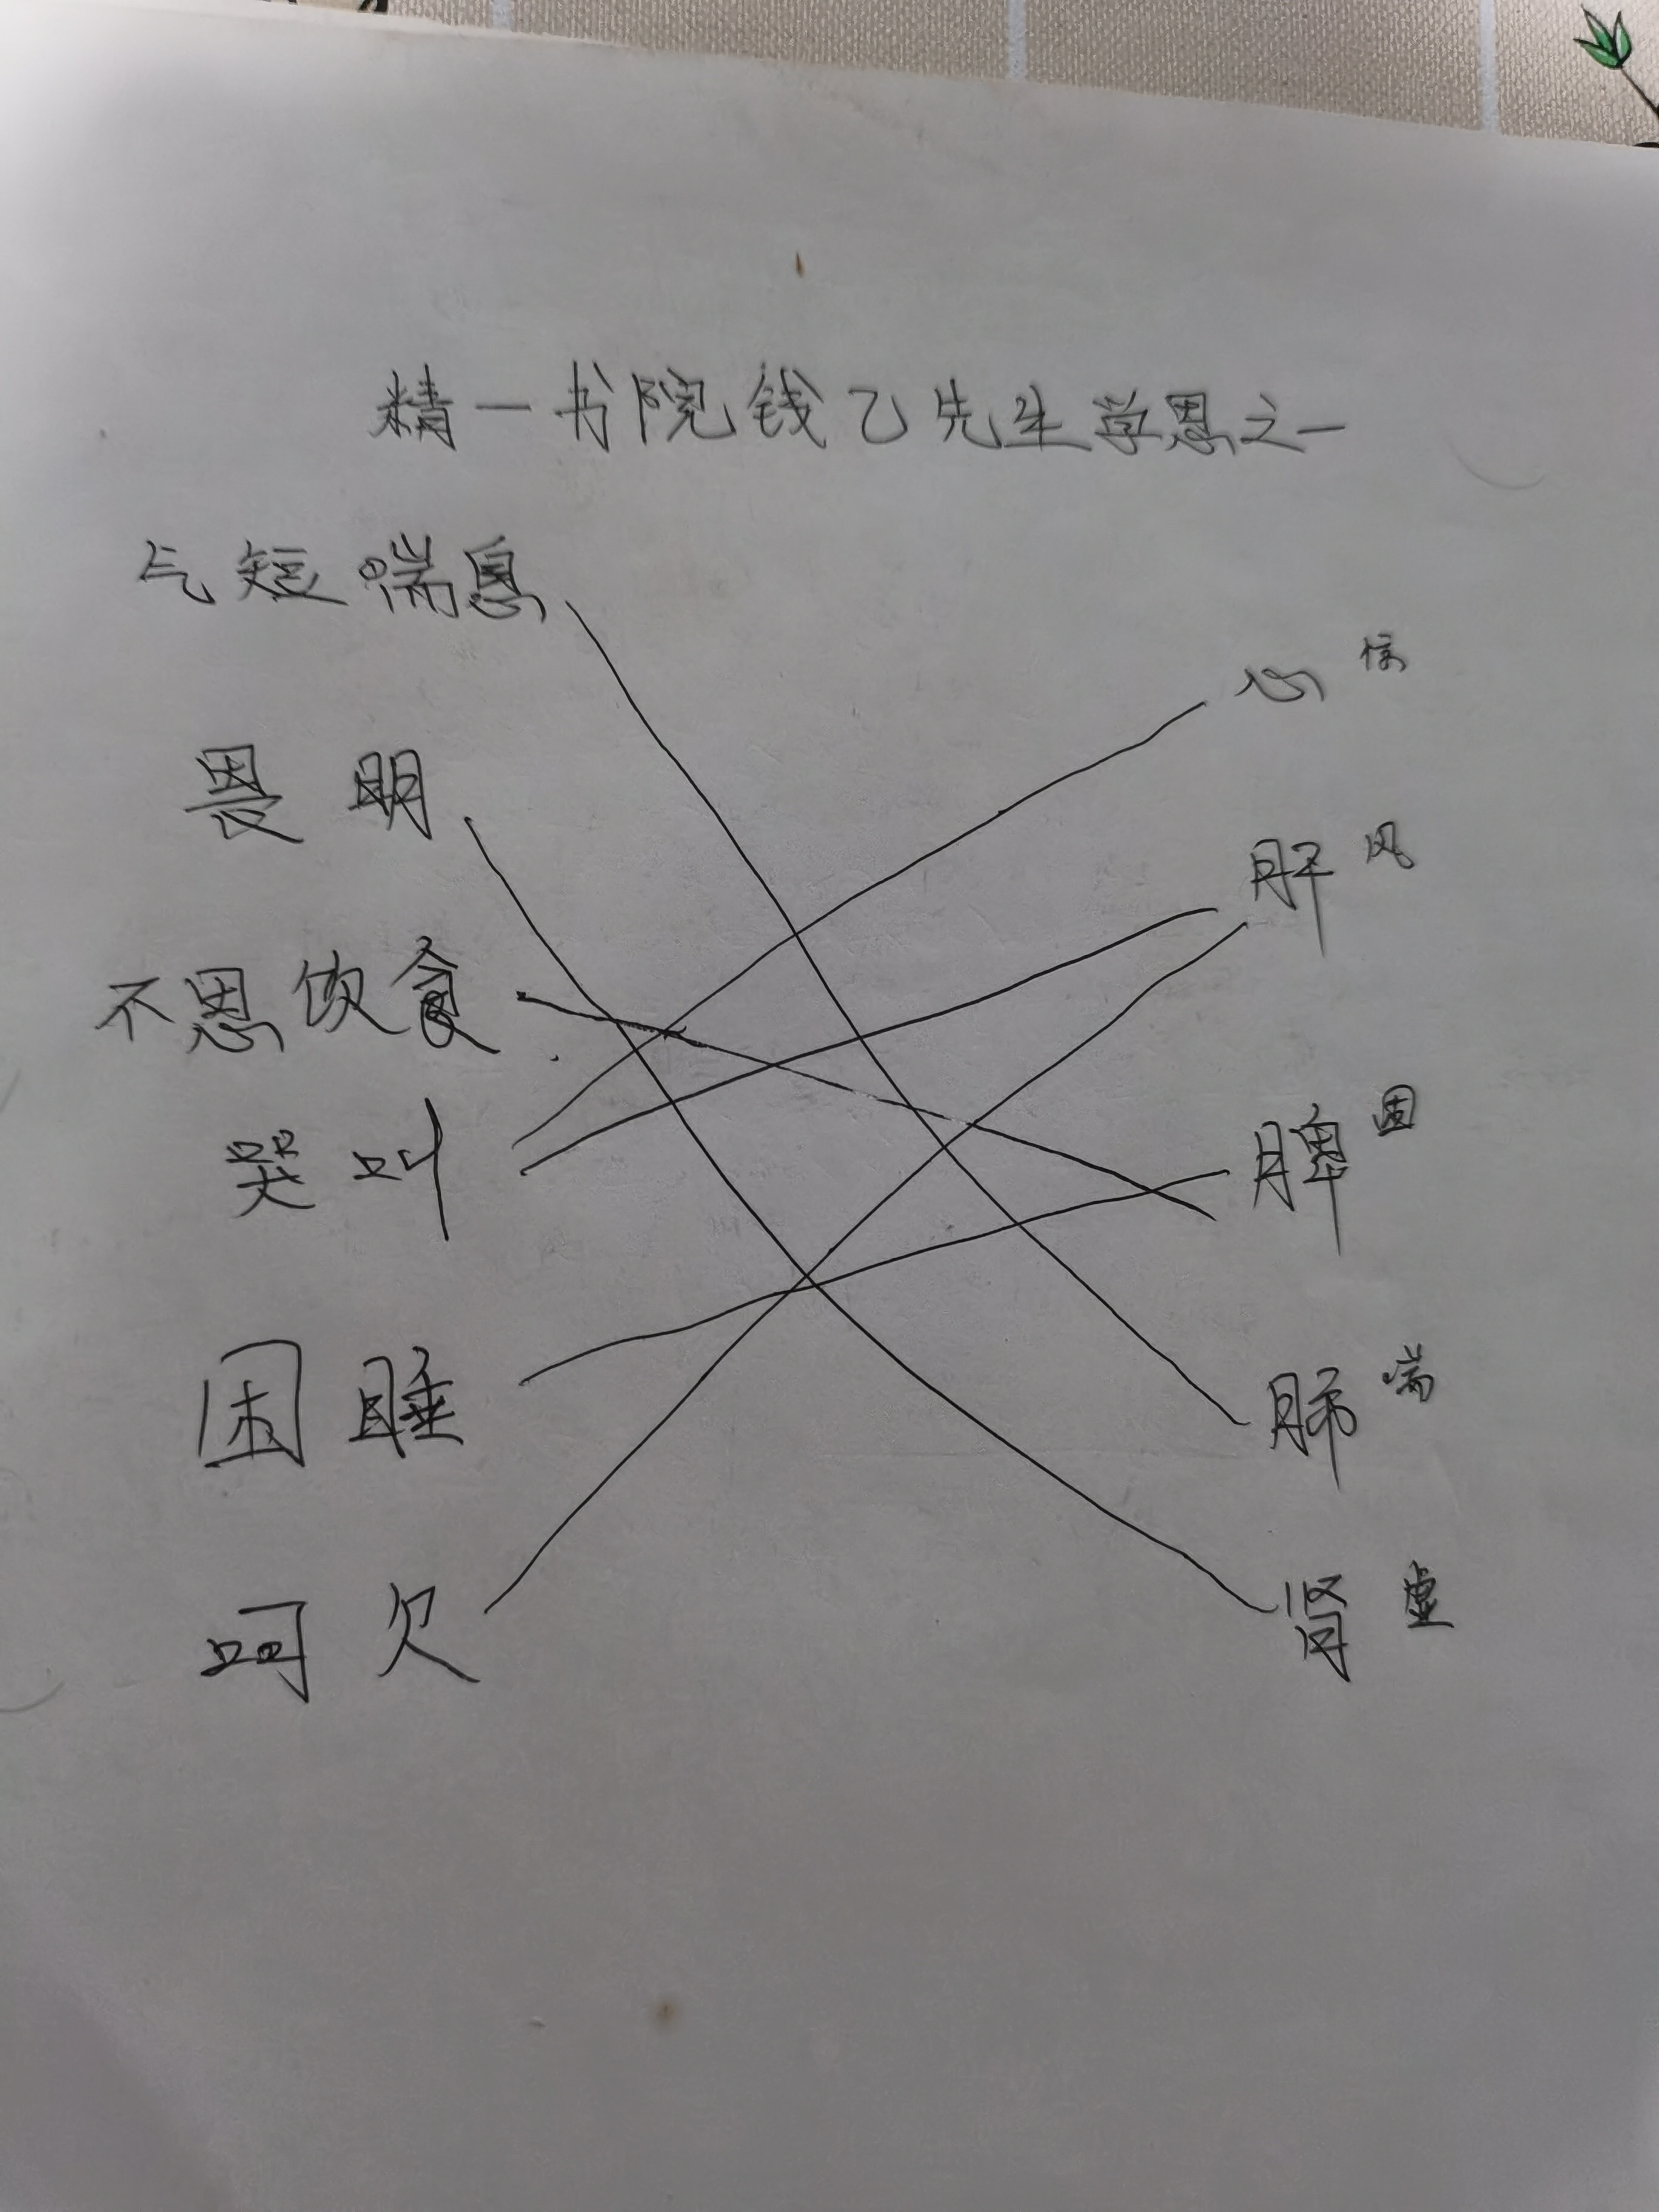 精一书院钱乙先生学思之一
气短喘息
畏明
不思饮食
哭叫
困睡
呵欠
心惊
肝风
脾困
肺喘
肾虚